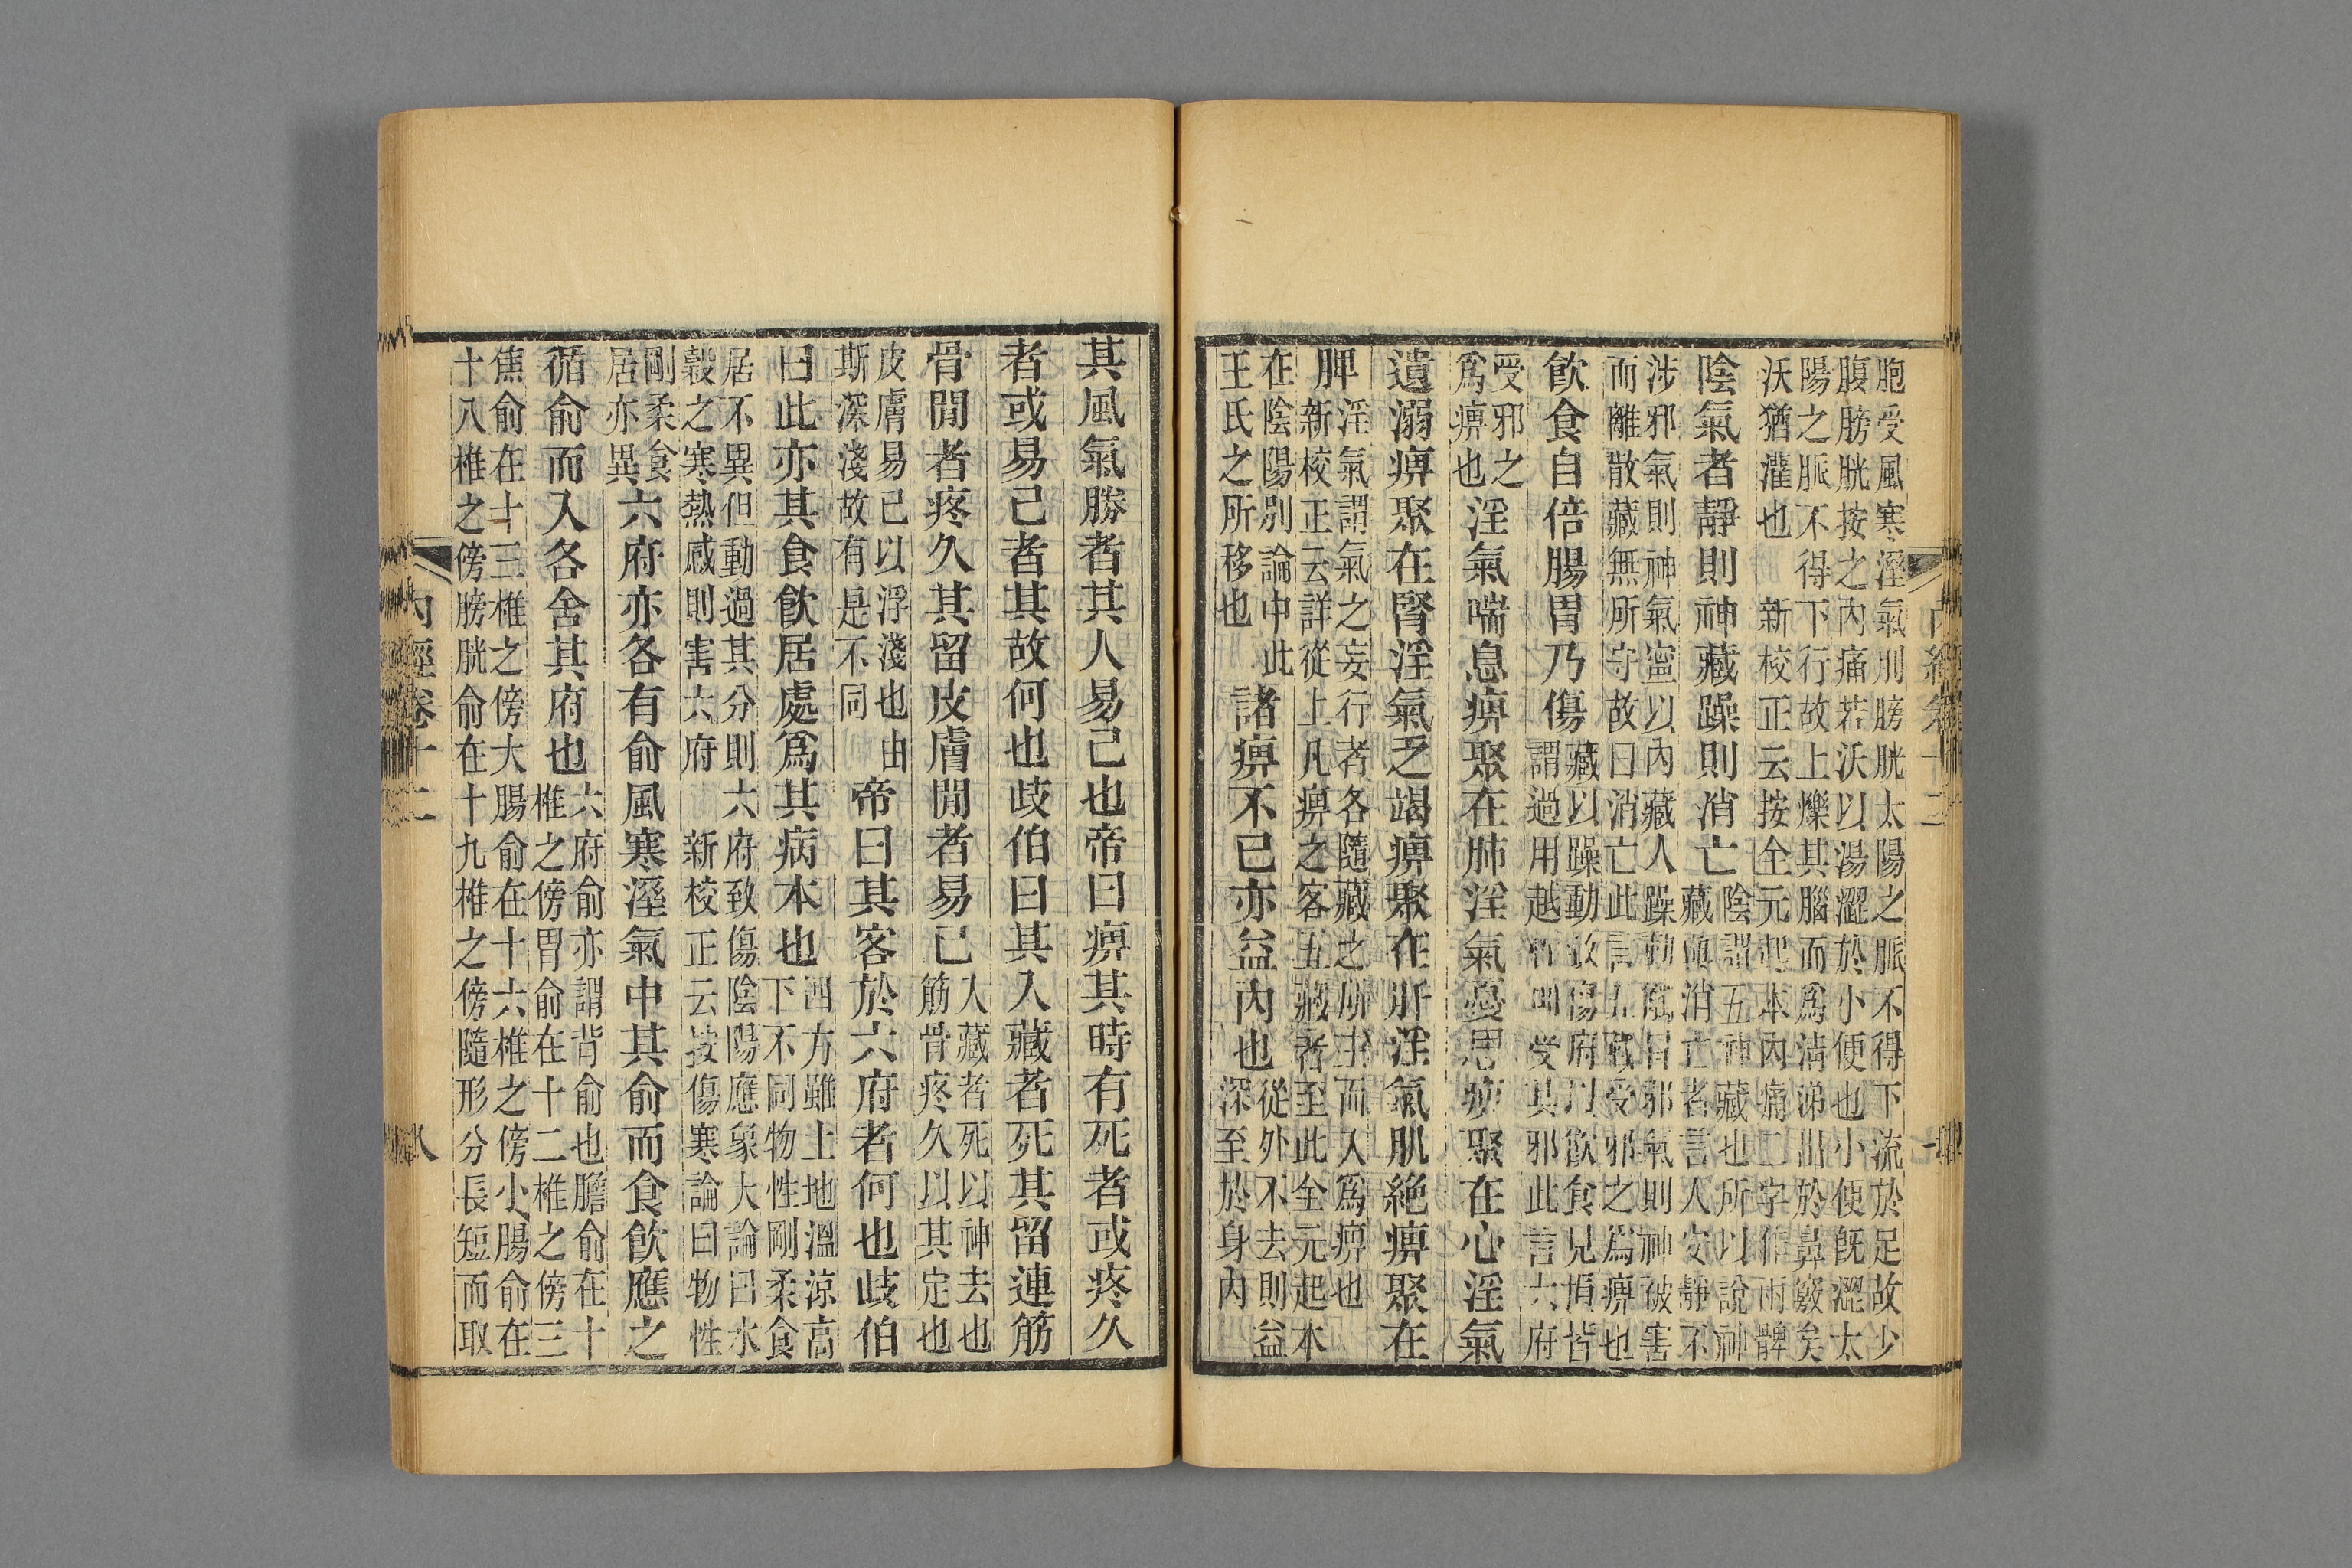 胞受風寒溼氣則膀胱太陽之脈不得下流於足故少
腹膀胱按之內痛若沃以湯澀於小便也小便既澀太
陽之脈不得下行故上爍其腦而爲清涕出於鼻竅矣
沃猶灌也 新校正云按全元起本內痛二字作兩髀
陰氣者靜則神藏躁則消亡
陰謂五神藏也所以說神
藏與消亡者言人安靜不
涉邪氣則神氣寧以內藏人躁動觸冒邪氣則神被害
而離散藏無所守故曰消亡此言五藏受邪之爲痹也
飲食自倍腸胃乃傷
藏以躁動致傷府以飲食見損皆
謂過用越性則受其邪此言六府
受邪之
爲痹也
淫氣喘息痹聚在肺淫氣憂思痹聚在心淫氣
遺溺痹聚在腎淫氣乏竭痹聚在肝淫氣肌絕痹聚在
脾
淫氣謂氣之妄行者各隨藏之所主而入爲痹也
新校正云詳從上凡痹之客五藏者至此全元起本
在陰陽別論中此
王氏之所移也
諸痹不已亦益內也
從外不去則益
深至於身內
其風氣勝者其人易已也帝曰痹其時有死者或疼久
者或易已者其故何也歧伯曰其入藏者死其留連筋
骨閒者疼久其留皮膚閒者易已
入藏者死以神去也
筋骨疼久以其定也
皮膚易已以浮淺也由
斯深淺故有是不同
帝曰其客於六府者何也歧伯
曰此亦其食飲居處爲其病本也
四方雖土地溫涼高
下不同物性剛柔食
居不異但動過其分則六府致傷陰陽應象大論曰水
穀之寒熱感則害六府 新校正云按傷寒論曰物性
剛柔食
居亦異
六府亦各有俞風寒溼氣中其俞而食飲應之
循俞而入各舍其府也
六府俞亦謂背俞也膽俞在十
椎之傍胃俞在十二椎之傍三
焦俞在十三椎之傍大腸俞在十六椎之傍小腸俞在
十八椎之傍膀胱俞在十九椎之傍隨形分長短而取
內經卷十二
八